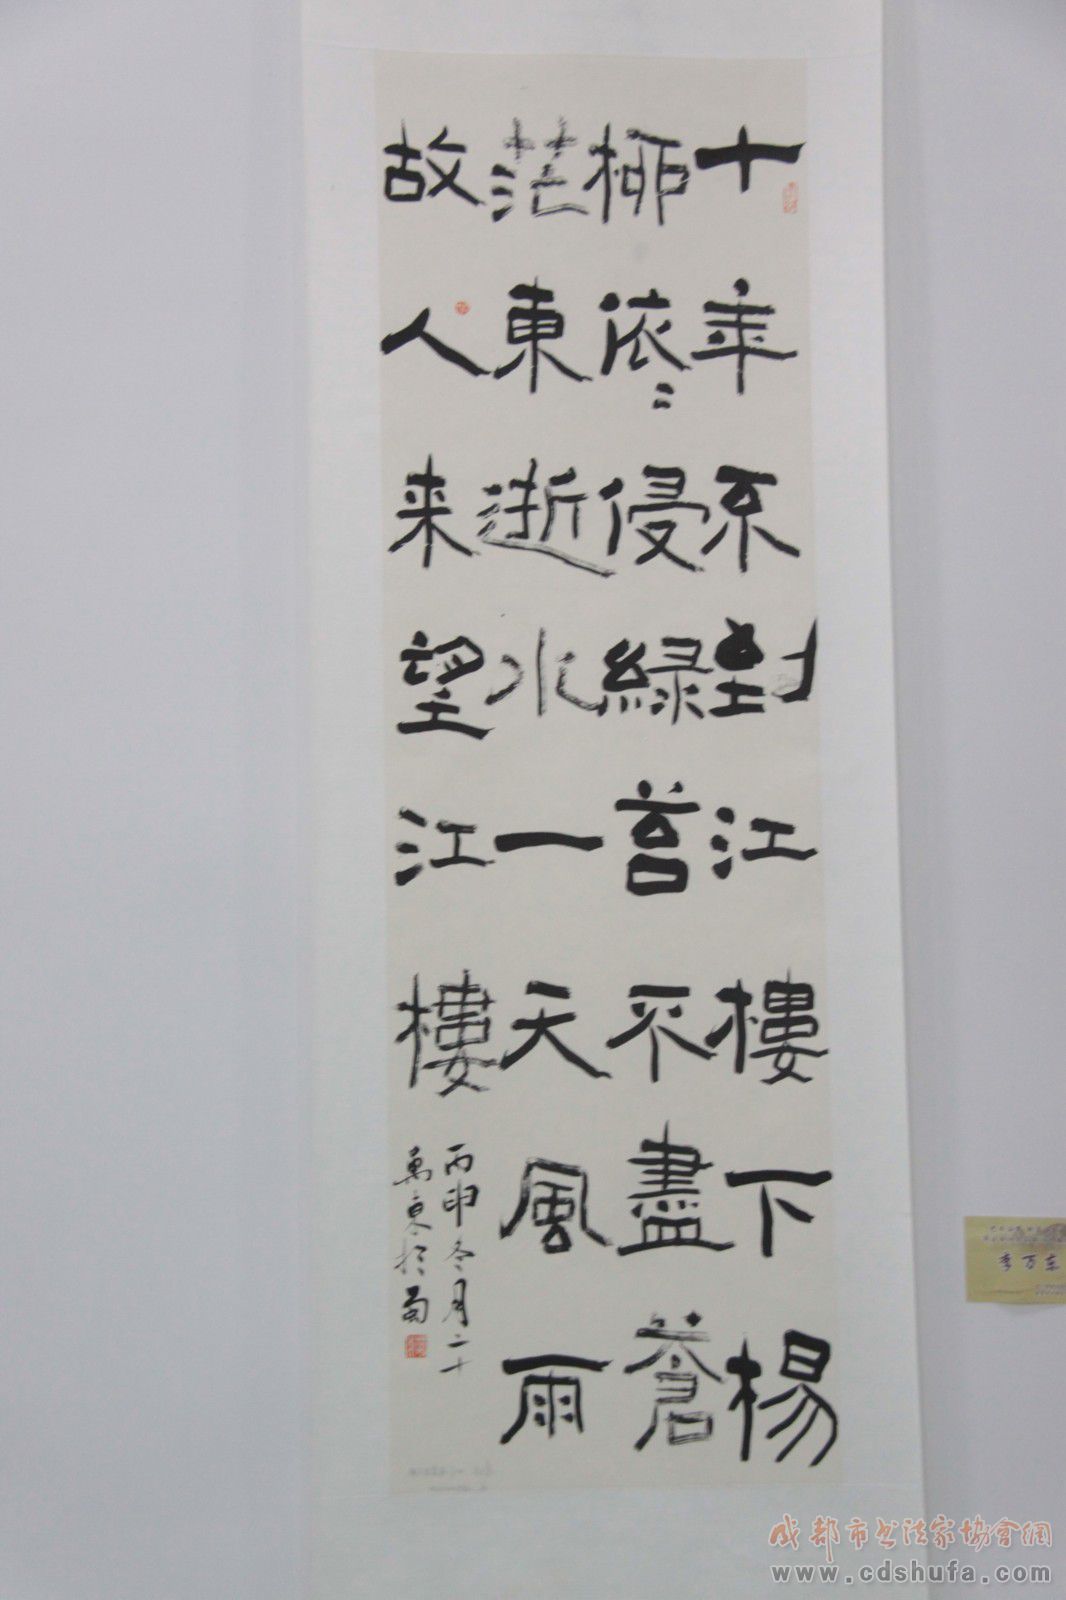 十年不到江樓下楊
柳依〻侵綠莒不盡蒼
茫東逝水一天風雨
故人来望江樓
丙申冬月二十
萬東於蜀
李万东
成都市书法家协會網
www.cdshufa.com